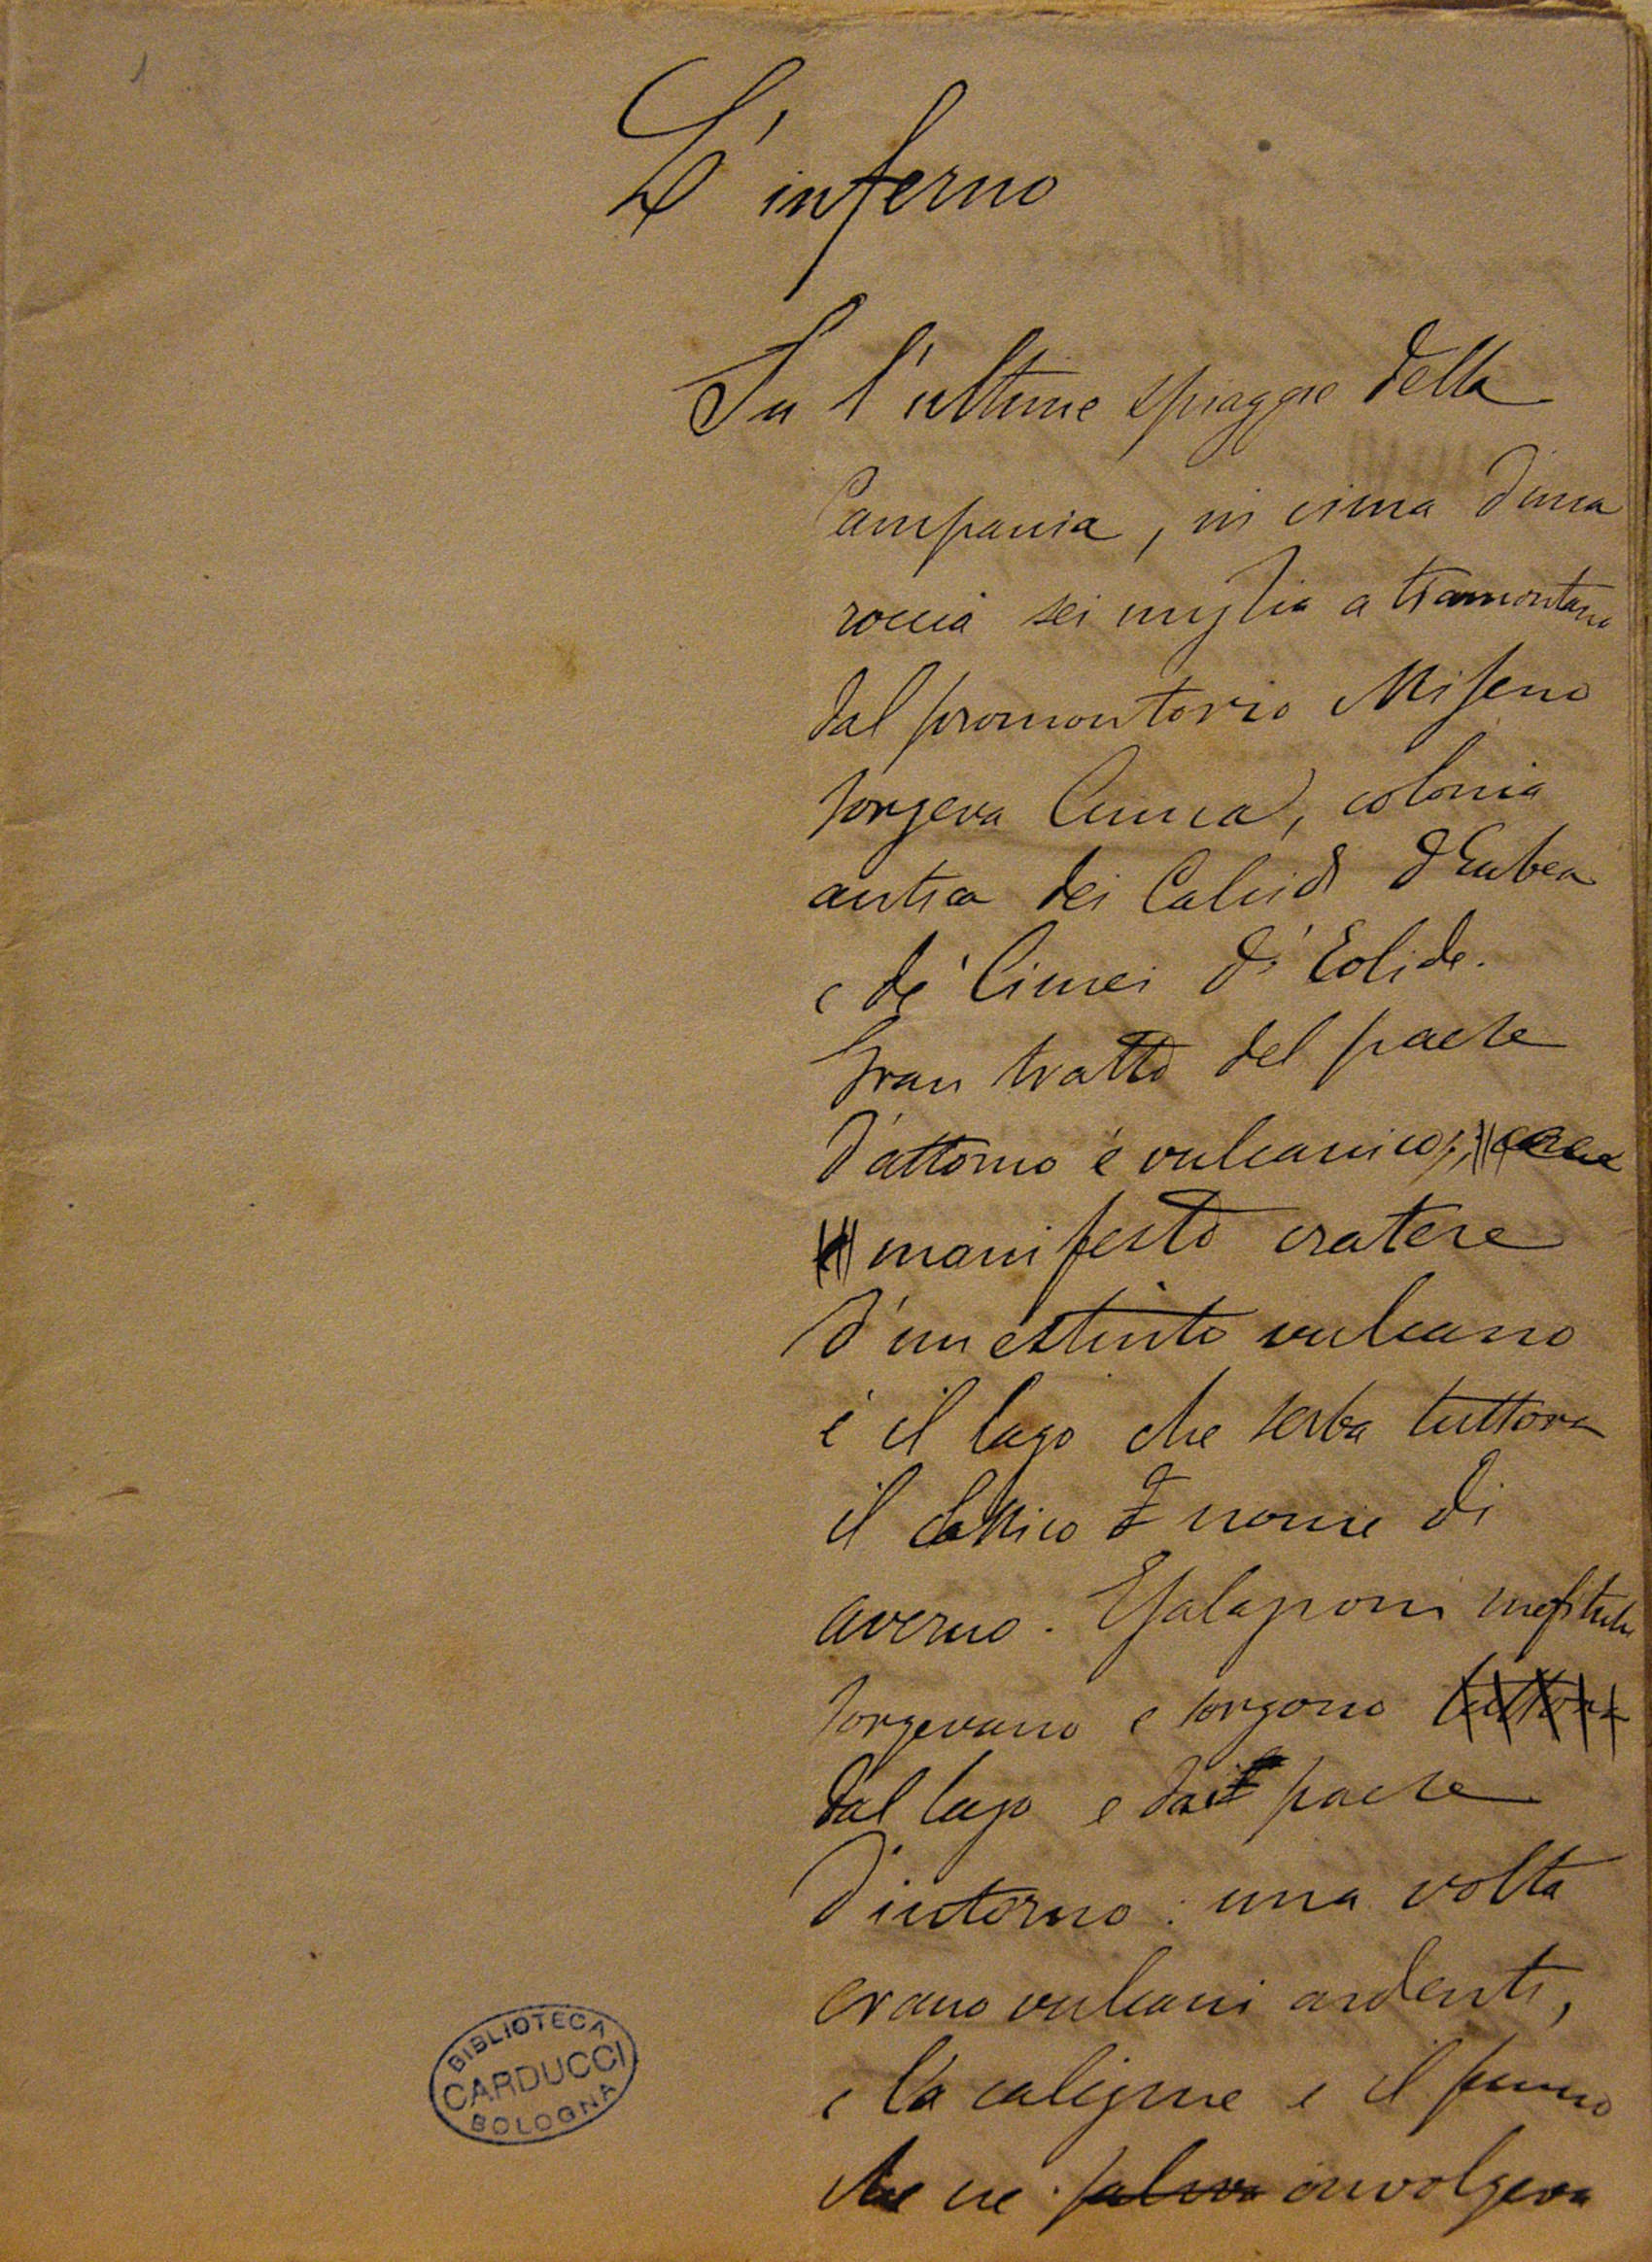 1
L'inferno
Su l'ultime spiagge della
Campania, in cima d'una
roccia sei miglia a tramontana
dal promontorio Miseno
sorgeva Cuma, colonia
antica dei Calcidi d'Eubea
e de' Cimei d'Eolide.
Gran tratto del paese
d'attorno è vulcanico;
manifesto cratere
d'un estinto vulcano
è il lago che serba tuttora
il classico nome di
averno. Esalazioni mefitiche
sorgevano e sorgono tuttora
dal lago e dal paese
d'intorno: una volta
erano vulcani ardenti,
e la caligine e il fumo
che ne saliva involgeva
BIBLIOTECA
CARDUCCI
BOLOGNA